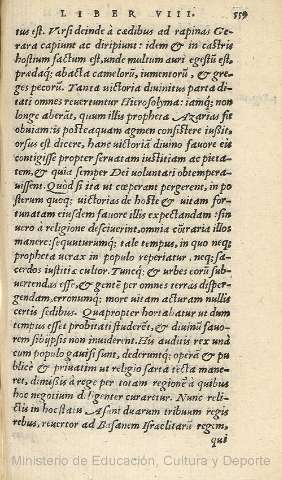 LIBER VIII. 559
tus est. Versi deinde à cædibus ad rapinas Ge
rara capiunt ac diripiunt: idem & in castris
hostium factum est, unde multum auri egestũ est,
prædaq; abacta camelorũ, iumentorũ, & gre-
ges pecorũ. Tanta uictoria diuinitus parta di-
tati omnes reuertuntur Hierosolyma: iamq; non
longe aberãt, quum illis propheta Azarias fit
obuiam: is posteaquam agmen consistere iußit,
orsus est dicere, hanc uictoriã diuino fauore eis
contigisse propter seruatam iustitiam ac pieta-
tem, & quia semper Dei uoluntati obtempera-
uissent. Quod si ita ut cœperant pergerent, in po
sterum quoq; uictorias de hoste & uitam for-
tunatam eiusdem fauore illis expectandam: sin
uero à religione desciuerint, omnia cõtraria illos
manere: sequuturumq; tale tempus, in quo neq;
propheta uerax in populo reperiatur, neq; sa-
cerdos iustitiæ cultor. Tuncq; & urbes eorũ sub-
uertendas esse, & gentẽ per omnes terras disper-
gendam, erronumq; more uitam acturam nullis
certis sedibus. Quapropter hortabatur ut dum
tempus esset probitati studerẽt, & diuinũ fauo-
rem sibijpsis non inuiderent. His auditis rex unà
cum populo gauisi sunt, dederuntq; operã & pu
blicè & priuatim ut religio sarta tecta mane-
ret, dimißis à rege per totam regionẽ à quibus
hoc negotium diligenter curaretur. Nunc reli-
ctis in hoc statu Asani duarum tribuum regis
rebus, reuertor ad Basanem Israelitarũ regem,
qui
Ministerio de Educación, Cultura y Deporte